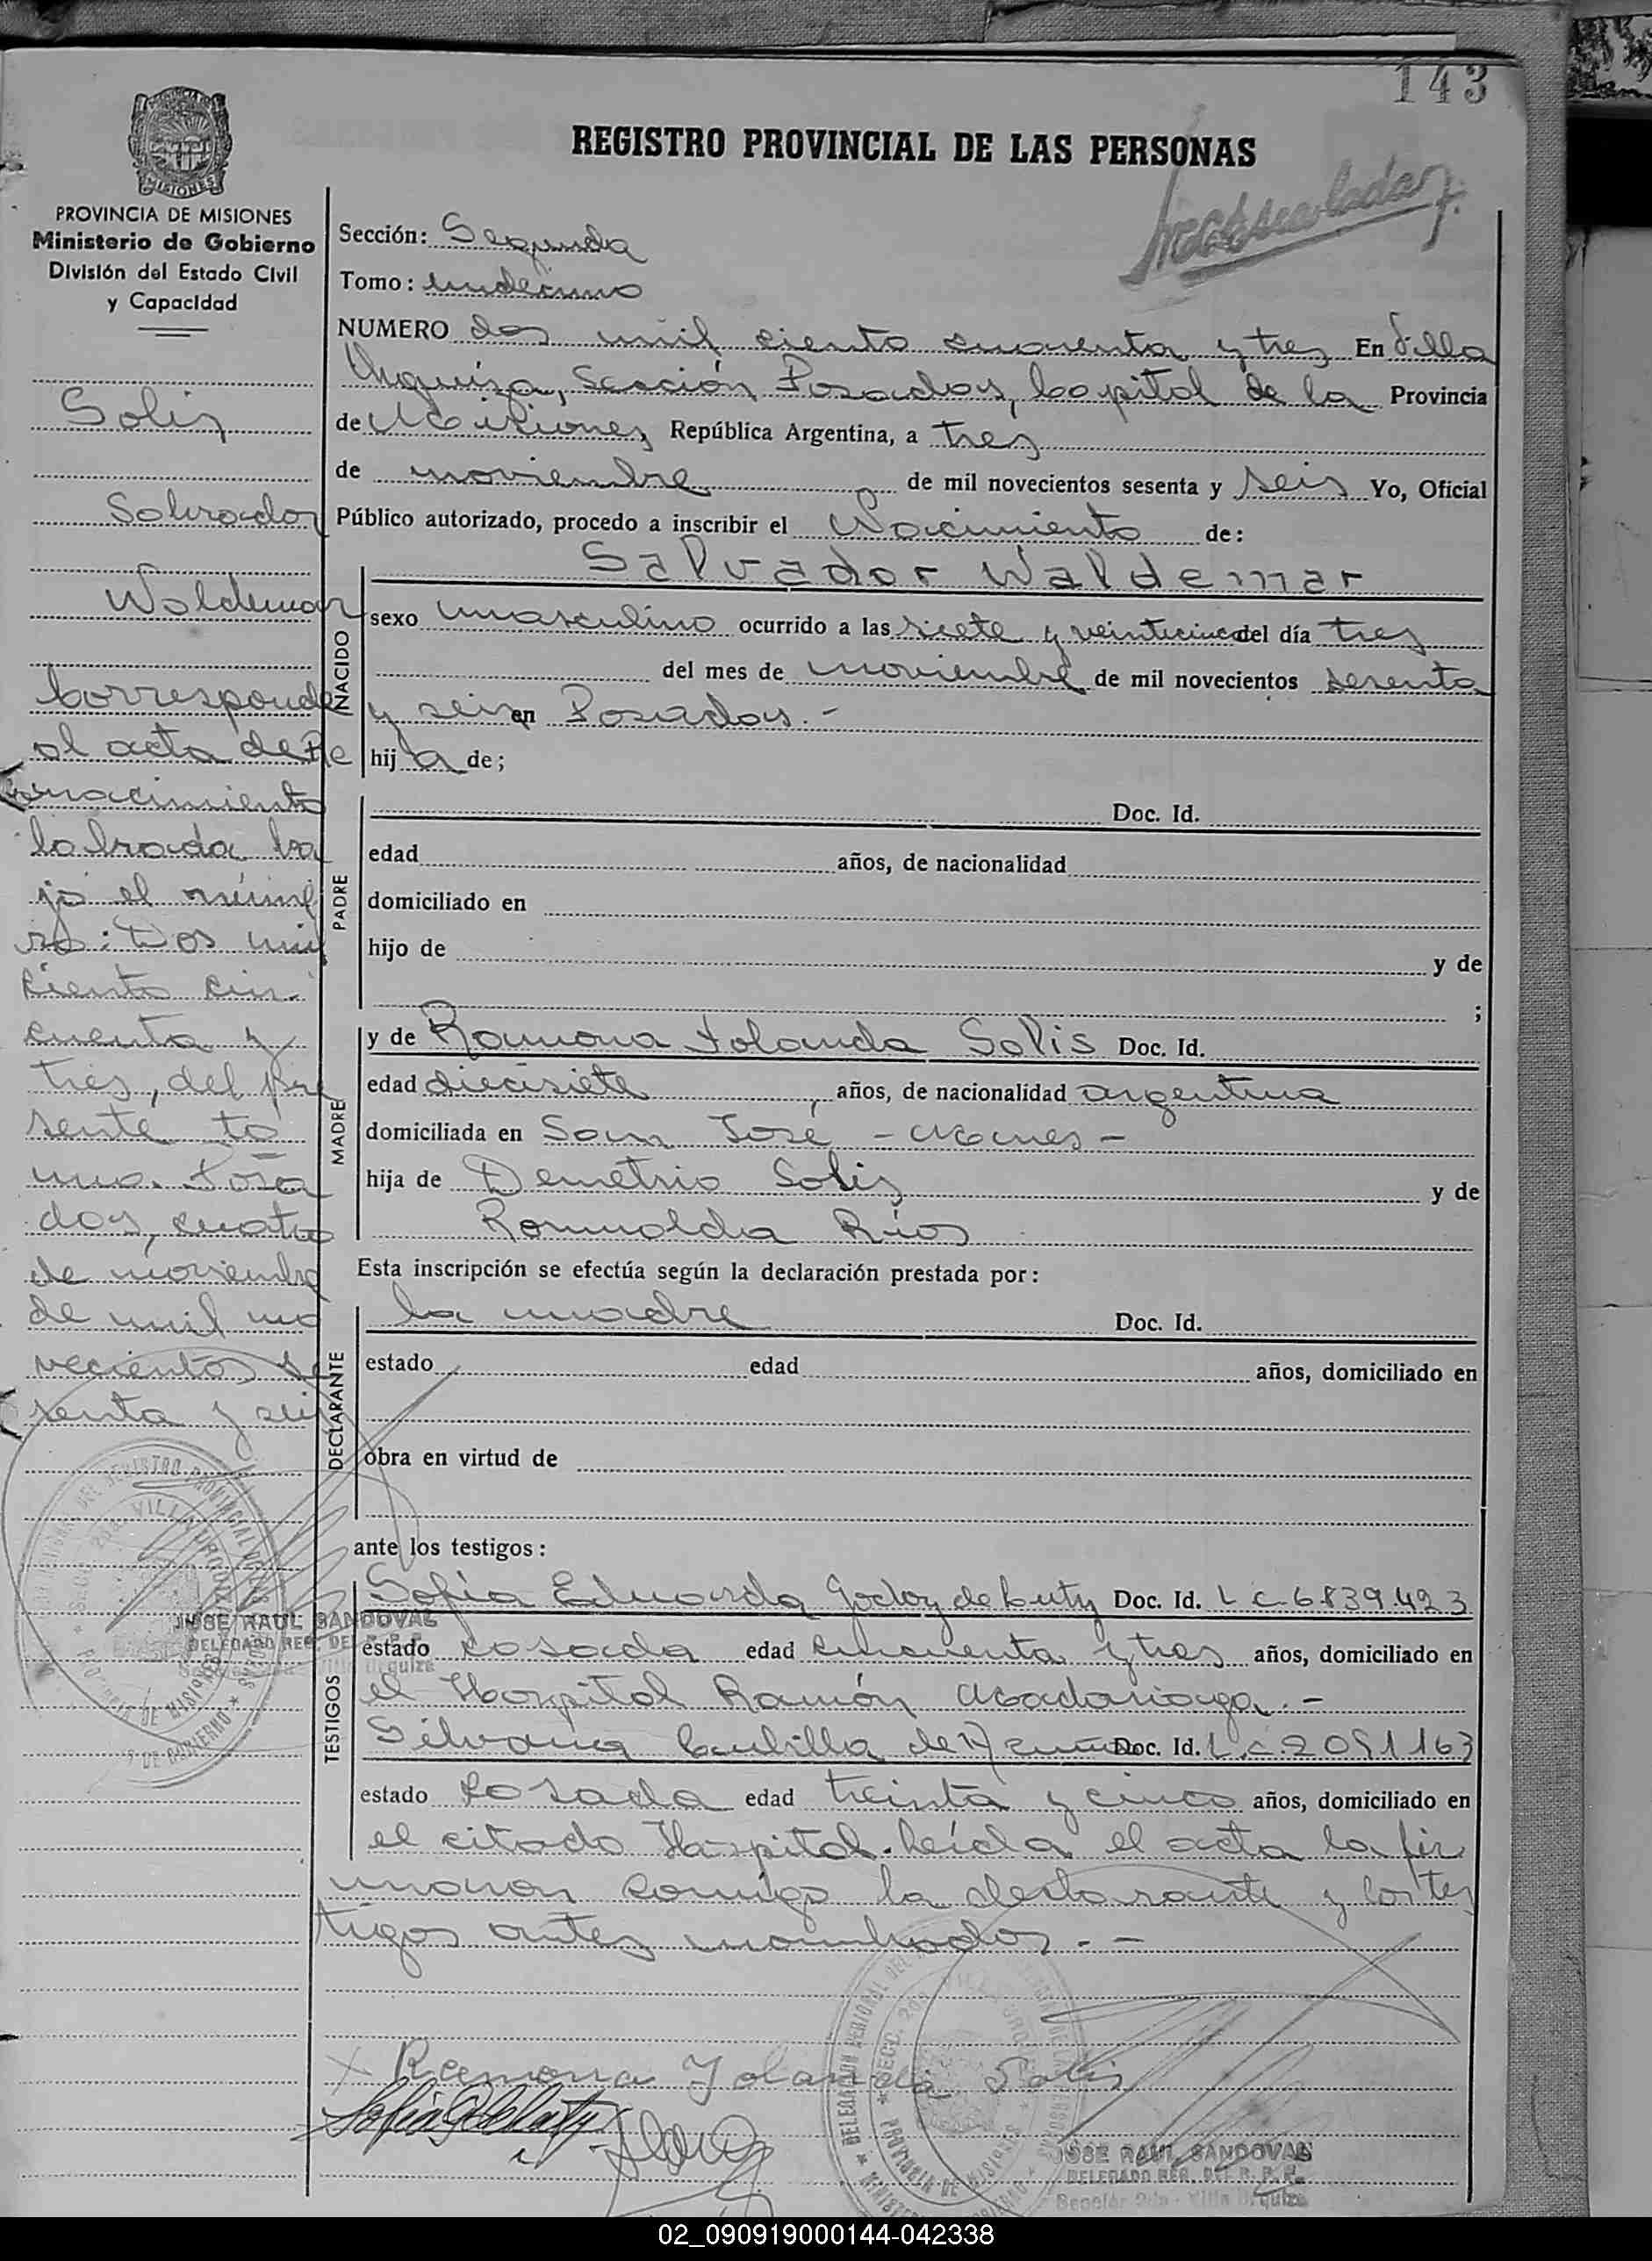 143
REGISTRO PROVINCIAL DE LAS PERSONAS
MISIONES
PROVINCIA DE MISIONES
Ministerio de Gobierno
División del Estado Civil
y Capacidad
Solis
Salvador
Waldemar
Corresponde
al acta de Re
conocimiento
labrada ba
jo el núme
ro: Dos mil
ciento cin
cuenta y
tres, del pre
sente to
mo. Posa
das, cuatro
de noviembre
de mil no
vecientos se
senta y seis
JOSE RAUL SANDOVAL
DELEGADO REG. DEL R. P. P.
Villa Urquiza
Sección: Segunda
Tomo: undécimo
NUMERO dos mil ciento cuarenta y tres En Villa
Urquiza, Sección Posadas, Capital de la Provincia
de Misiones, República Argentina, a tres
de noviembre de mil novecientos sesenta y seis Yo, Oficial
Público autorizado, procedo a inscribir el Nacimiento de:
Salvador Waldemar
NACIDO
sexo masculino ocurrido a las siete y veinticinco del día tres
del mes de noviembre de mil novecientos sesenta
y seis en Posadas.-
hij de;
PADRE
Doc. Id.
edad años, de nacionalidad
domiciliado en
hijo de y de
;
MADRE
y de Ramona Yolanda Solis Doc. Id.
edad diecisiete, años, de nacionalidad argentina
domiciliada en San José - Mnes -
hija de Demetrio Solis y de
Romualda Ríos
Esta inscripción se efectúa según la declaración prestada por:
DECLARANTE
la madre Doc. Id.
estado edad años, domiciliado en
obra en virtud de
ante los testigos:
TESTIGOS
Sofía Eduarda Godoy de Cuty Doc. Id. L C 6839.423
estado casada edad cincuenta y tres años, domiciliado en
el Hospital Ramón Madariaga.-
Silvana Cubilla de Doc. Id. L.C. 2091163
estado casada edad treinta y cinco años, domiciliado en
el citado Hospital. Leída el acta la fir
maron conmigo la declarante y los tes
tigos antes nombrados.-
x Ramona Yolanda Solis
JOSE RAUL SANDOVAL
DELEGADO REG. DEL R. P. P.
Sección 2da - Villa Urquiza
02_090919000144-042338